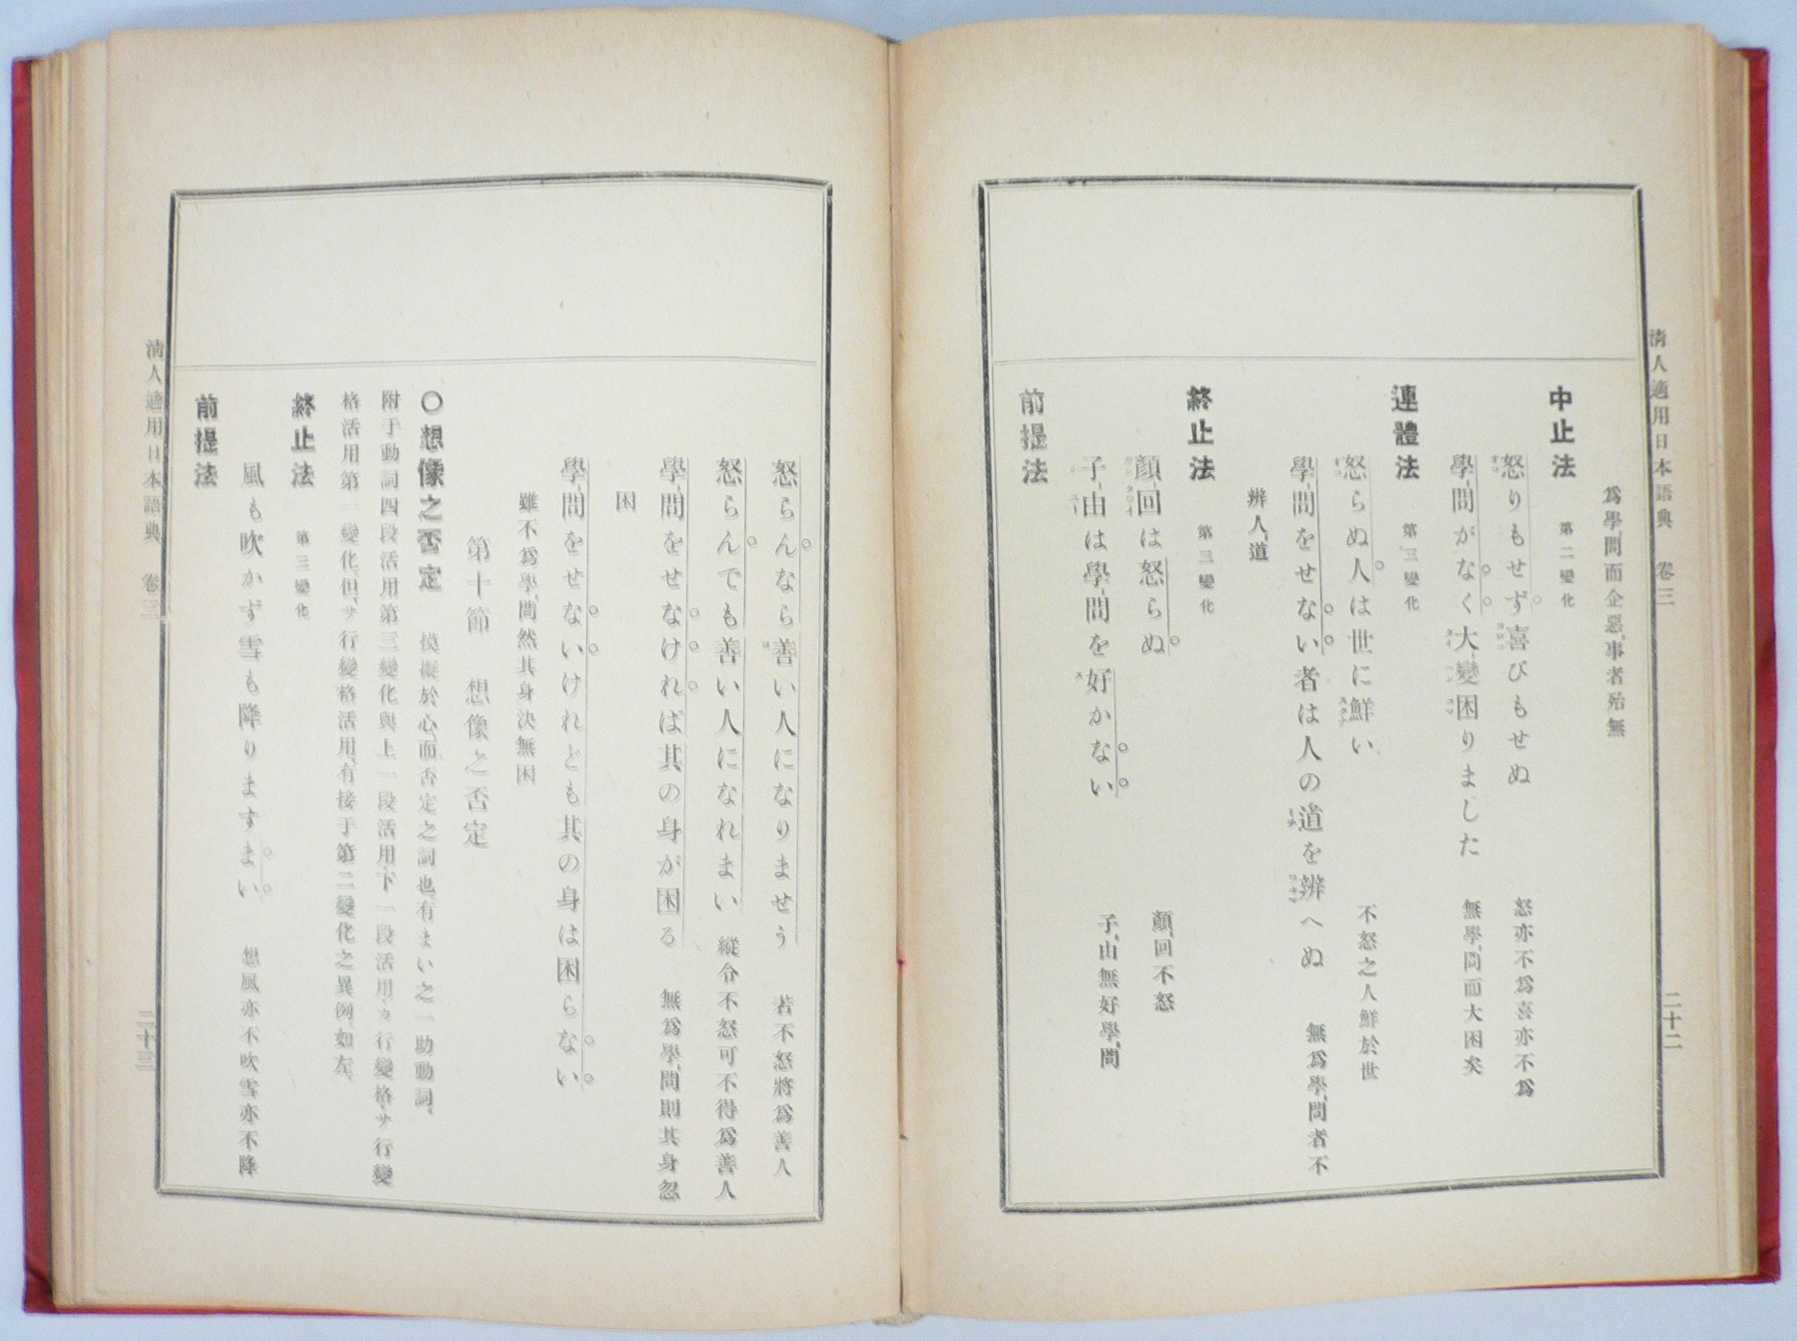 淸人適用日本語典　卷三
二十二
爲學、問而企惡、事者殆無
中止法　第二變化
怒りもせず喜びもせぬ　怒亦不爲喜亦不爲
學問がなく大變困りました　無學、問而大困矣
連體法　第三變化
怒らぬ人は世に鮮い　不怒之人鮮於世
學問をせない者は人の道を辨へぬ　無爲學、問者不
辨人、道
終止法　第三變化
顏回は怒らぬ　顏、回不怒
子由は學問を好かない　子、由無好學、問
前提法
怒らんなら善い人になりませう　若不怒將爲善人
怒らんでも善い人になれまい　縱令不怒可不得爲善人
學問をせなければ其の身が困る　無爲學、問則其身忽
困
學問をせないけれども其の身は困らない
雖不爲學、問然其身決無困
第十節　想像之否定
〇想像之否定　模擬於心、而否定之詞也、有まい之一助動詞、
附于動詞四段活用第三變化與上一段活用、下一段活用、カ行變格、サ行變
格活用第一變化、但、サ行變格活用、有接于第二變化之異例、如左、
終止法　第三變化
風も吹かず雪も降りますまい　想風亦不吹雪亦不降
前提法
淸人適用日本語典　卷三
二十三